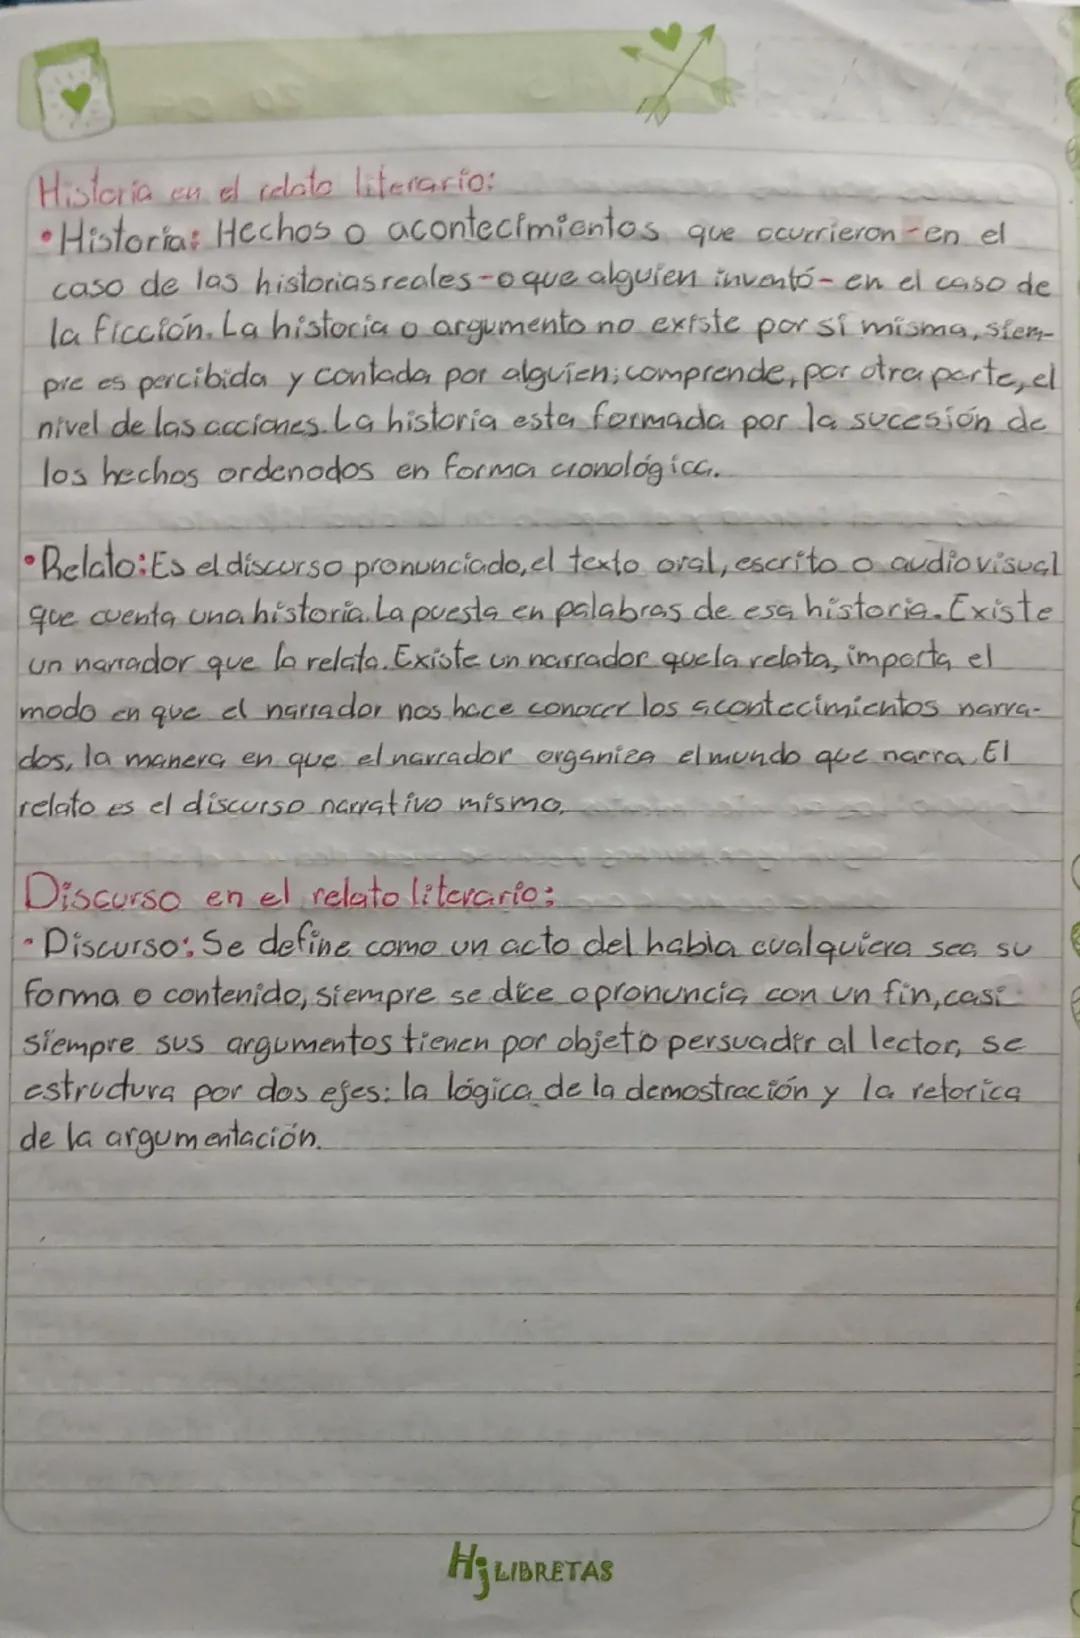 Historia en el relato literario:
• Historia: Hechos o acontecimientos que ocurrieron - en el
caso de las historias reales - o que alguien inventó - en el caso de
la ficción. La historia o argumento no existe por sí misma, siem-
pre es percibida y contada por alguien; comprende, por otra parte, el
nivel de las acciones. La historia esta formada por la sucesión de
los hechos ordenados en forma cronológica.
• Relato: Es el discurso pronunciado, el texto oral, escrito o audiovisual
que cuenta una historia. La puesta en palabras de esa historia. Existe
un narrador que la relata. Existe un narrador que la relata, importa el
modo en que el narrador nos hace conocer los acontecimientos narra-
dos, la manera en que el narrador organiza el mundo que narra. El
relato es el discurso narrativo mismo.
Discurso en el relato literario:
• Discurso: Se define como un acto del habla cualquiera sea su
forma o contenido, siempre se dice o pronuncia con un fin, casi
siempre sus argumentos tienen por objeto persuadir al lector, se
estructura por dos ejes: la lógica de la demostración y la retorica
de la argumentación.
Hj LIBRETAS